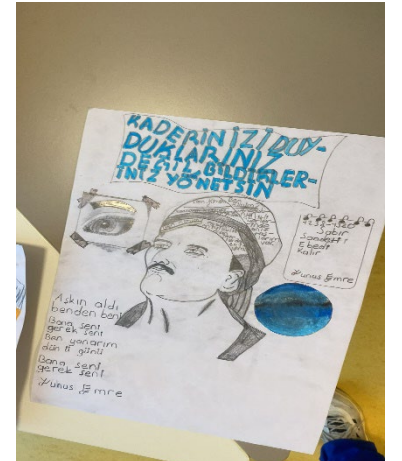 KADERİNİZİ DUY-
DUKLARINIZ
DEĞİL, BİLDİKLER-
İNİZ YÖNETSİN
Sabır
Ebedi
Kalır
Yunus Emre
Aşkın aldı
benden beni
Bana seni
gerek seni
Ben yanarım
dün ü günü
Bana seni
gerek seni
Yunus Emre